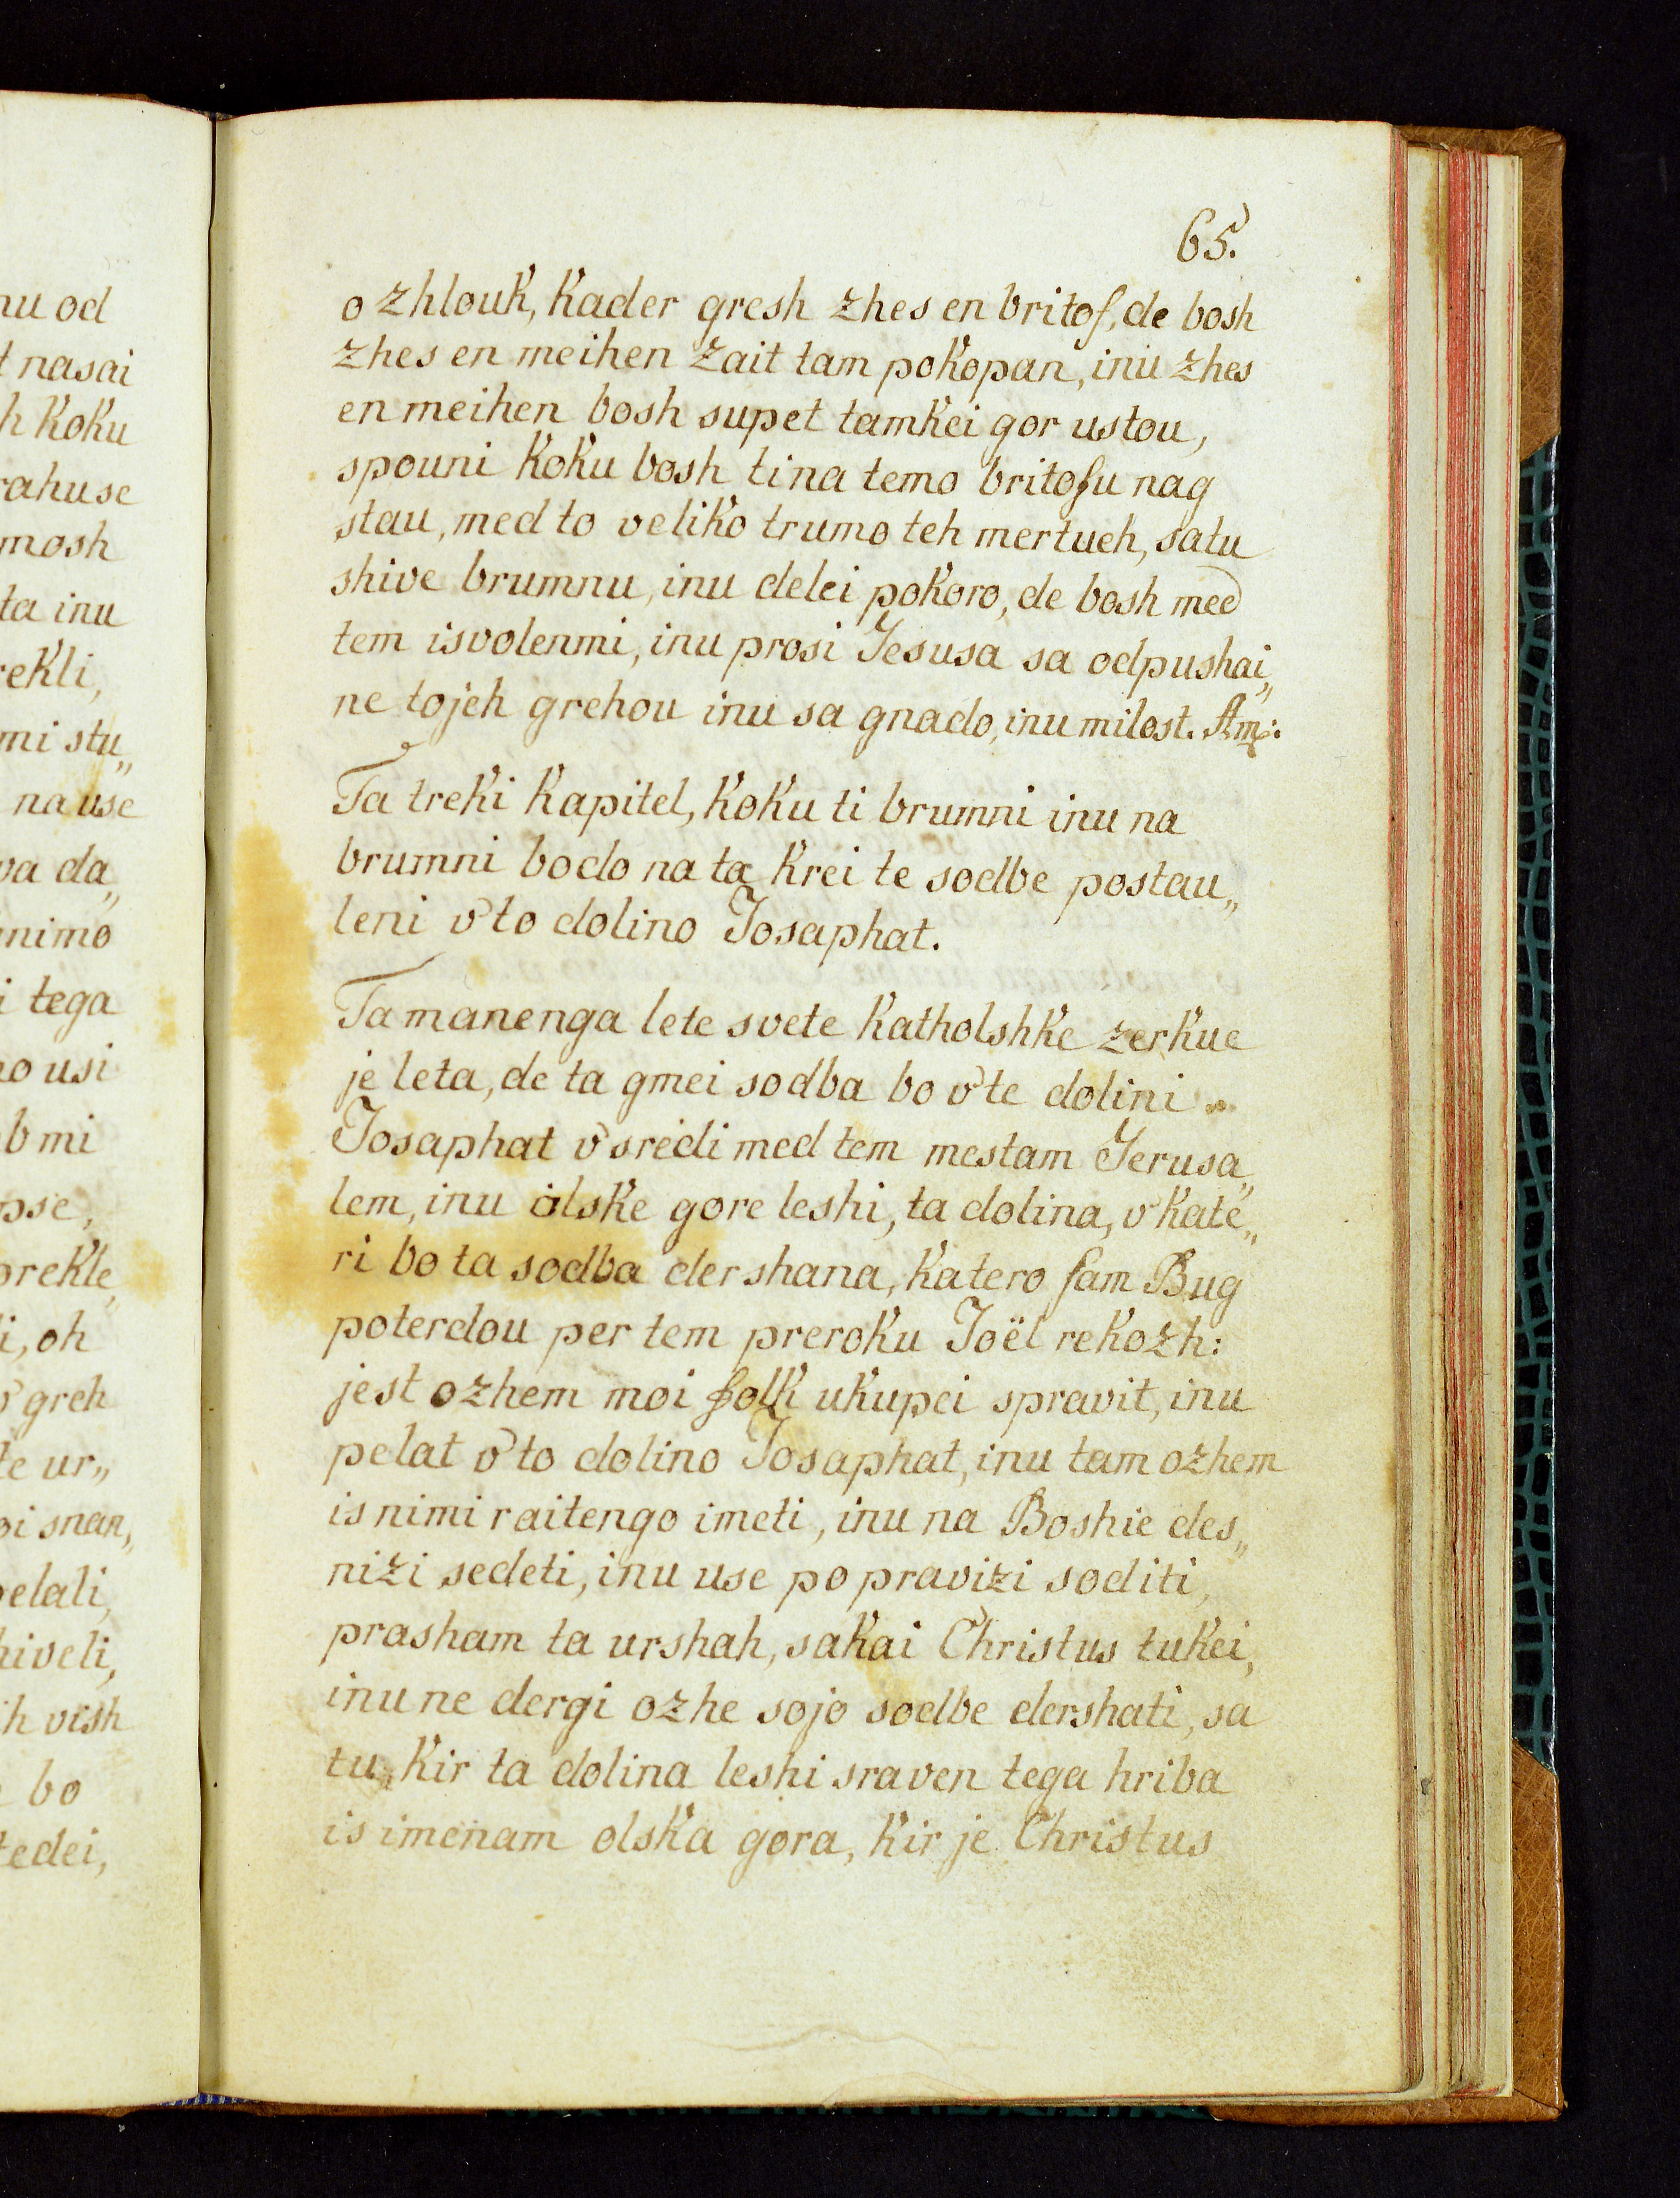 65.
o zhlouk, kader gresh zhes en britof, de bosh
zhes en meihen zait tam pokopan, inu zhes
en meihen bosh supet tamkei gor ustou,
spouni koku bosh ti na temo britofu nag
stau, med to veliko trumo teh mertueh, satu
shive brumnu, inu delei pokoro, de bosh med
tem isvolenmi, inu prosi Jesusa sa odpushai„
ne tojeh grehou inu sa gnado, inu milost. Am:
Ta treki kapitel, koku ti brumni inu na
brumni bodo na ta krei te sodbe postau„
leni v to dolino Josaphat.
Ta manenga lete svete katholshke zerkue
je leta, de ta gmei sodba bo v te dolini
Josaphat v sredi med tem mestam Jerusa„
lem, inu olske gore leshi, ta dolina, v kate„
ri bo ta sodba dershana, katero sam Bug
poterdou per tem preroku Joël rekozh:
jest ozhem moi folk ukupei spravit, inu
pelat v to dolino Josaphat, inu tam ozhem
is nimi raitengo imeti, inu na Boshie des„
nizi sedeti, inu use po pravizi soditi,
prasham ta urshah, sakai Christus tukei,
inu ne dergi ozhe sojo sodbe dershati, sa
tu, kir ta dolina leshi sraven tega hriba
is imenam olska gora, kir je Christus
nu od
t nasai
h koku
rahuse
mosh
ta inu
rekli,
mi stu„
na use
va da„
nimo
i tega
no usi
b mi
pse,
prekle„
i, oh
v greh
te ur„
oi snan,
pelali,
hiveli,
ih vish
bo
tedei,